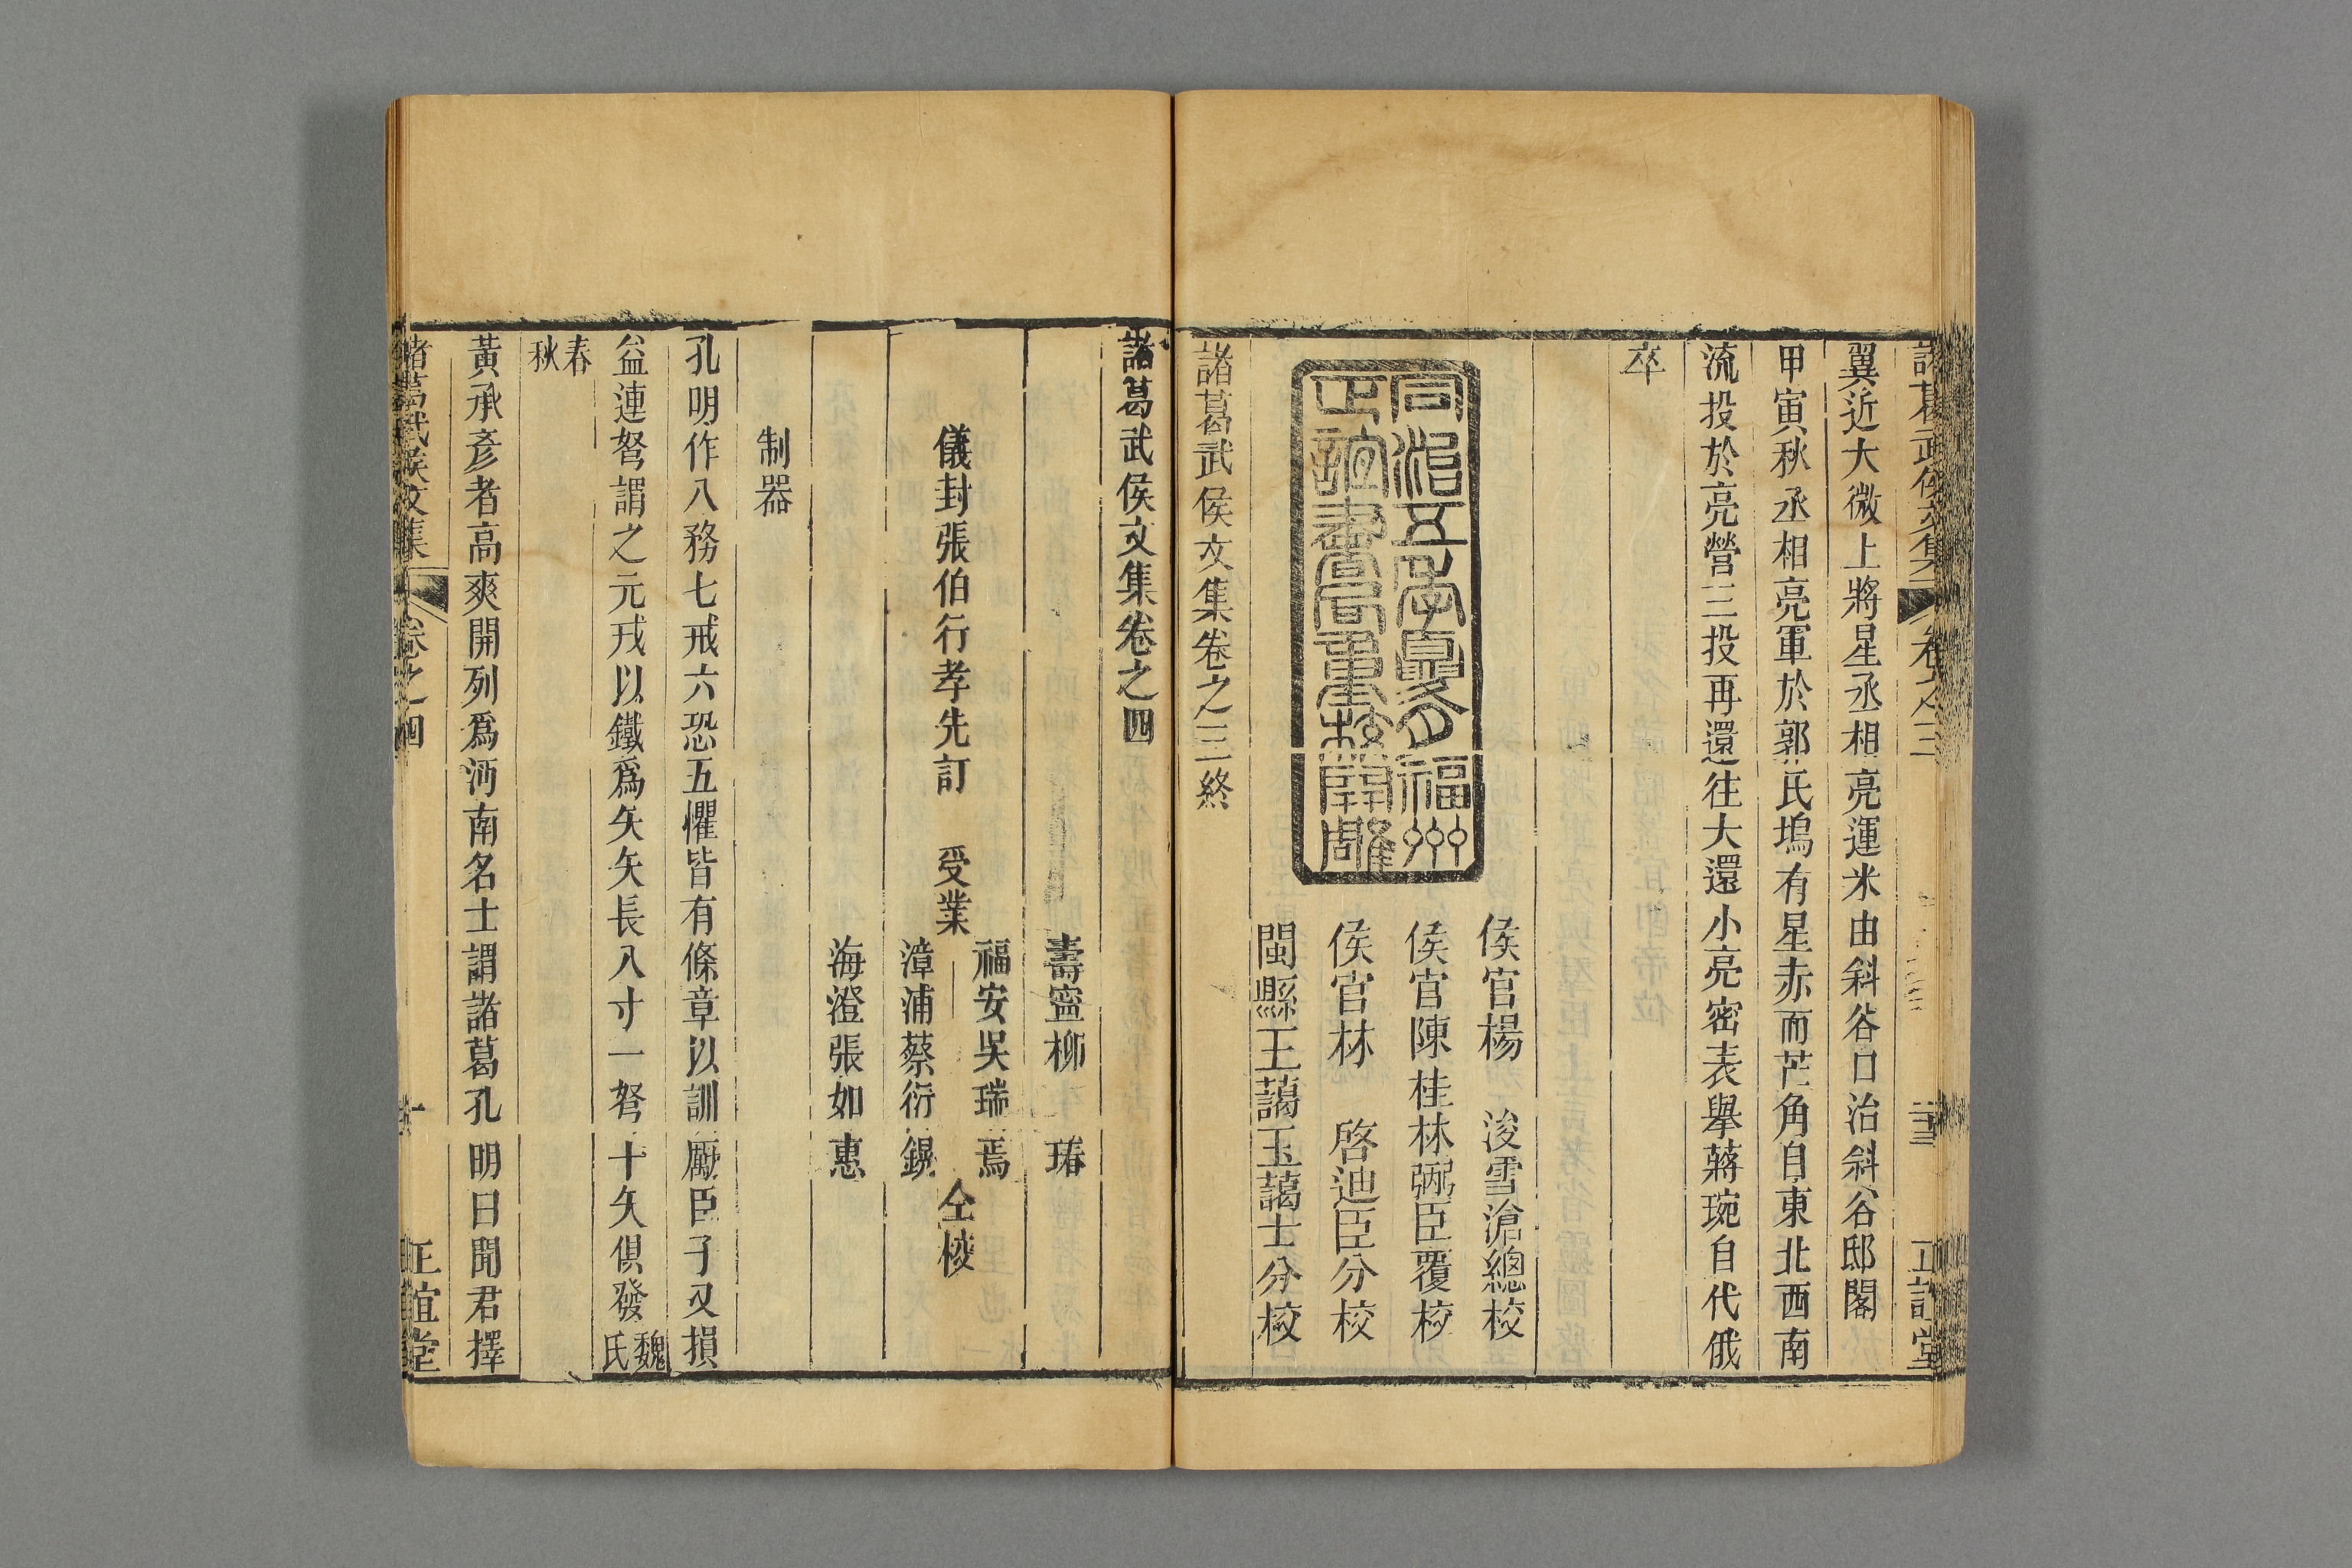 諸葛武侯文集 卷之三 正誼堂
翼近大微上將星丞相亮運米由斜谷口治斜谷邸閣
甲寅秋丞相亮軍於郭氏塢有星赤而芒角自東北西南
流投於亮營三投再還往大還小亮密表舉蔣琬自代俄
卒
侯官楊 浚雪滄總校
侯官陳桂林弼臣覆校
侯官林 啓迪臣分校
閩縣王藹玉藹士分校
同治五年夏月福州
正誼書局重校開雕
諸葛武侯文集卷之三終
諸葛武侯文集卷之四
壽寧柳 瑃
儀封張伯行孝先訂 受業
福安吳瑞焉
漳浦蔡衍鎤
仝校
海澄張如惠
制器
孔明作八務七戒六恐五懼皆有條章以訓厲臣子又損
益連弩謂之元戎以鐵爲矢矢長八寸一弩十矢俱發魏氏
春秋
黃承彥者高爽開列爲沔南名士謂諸葛孔明曰聞君擇
諸葛武侯文集 卷之四 一 正誼堂